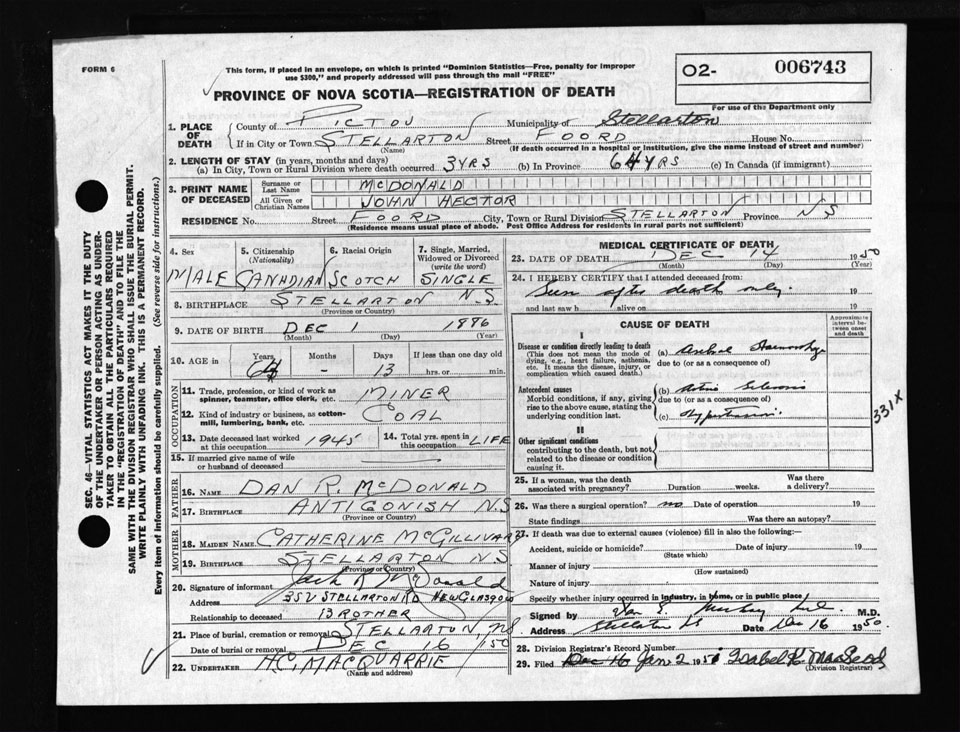 FORM 6
This form, if placed in an envelope, on which is printed "Dominion Statistics—Free, penalty for improper
use $300," and properly addressed will pass through the mail "FREE"
O2- 006743
For use of the Department only
PROVINCE OF NOVA SCOTIA—REGISTRATION OF DEATH
1. PLACE OF DEATH
County of PICTOU Municipality of Stellarton
If in City or Town STELLARTON Street FOORD House No.
(Name) (If death occurred in a hospital or institution, give the name instead of street and number)
2. LENGTH OF STAY (in years, months and days)
(a) In City, Town or Rural Division where death occurred 3 YRS (b) In Province 64 YRS (c) In Canada (if immigrant)
3. PRINT NAME OF DECEASED
Surname or Last Name McDONALD
All Given or Christian Names JOHN HECTOR
RESIDENCE No. Street FOORD City, Town or Rural Division STELLARTON Province N S
(Residence means usual place of abode. Post Office Address for residents in rural parts not sufficient)
4. Sex 5. Citizenship (Nationality) 6. Racial Origin 7. Single, Married, Widowed or Divorced (write the word)
MALE CANADIAN SCOTCH SINGLE
8. BIRTHPLACE STELLARTON N.S.
(Province or Country)
9. DATE OF BIRTH DEC 1 1886
(Month) (Day) (Year)
10. AGE in Years Months Days If less than one day old
64 - 13 hrs. or min.
OCCUPATION
11. Trade, profession, or kind of work as spinner, teamster, office clerk, etc. MINER
12. Kind of industry or business, as cotton-mill, lumbering, bank, etc. COAL
13. Date deceased last worked at this occupation 1945 14. Total yrs. spent in this occupation LIFE
15. If married give name of wife or husband of deceased
FATHER
16. NAME DAN R. McDONALD
17. BIRTHPLACE ANTIGONISH N.S
(Province or Country)
MOTHER
18. MAIDEN NAME CATHERINE McGILLIVARY
19. BIRTHPLACE STELLARTON N.S.
(Province or Country)
20. Signature of informant Jack R McDonald
Address STELLARTON RD NEW GLASGOW
Relationship to deceased BROTHER
21. Place of burial, cremation or removal STELLARTON, NS
Date of burial or removal DEC 16 1950
22. UNDERTAKER H.C. MACQUARRIE
(Name and address)
MEDICAL CERTIFICATE OF DEATH
23. DATE OF DEATH DEC 14 1950
(Month) (Day) (Year)
24. I HEREBY CERTIFY that I attended deceased from:
Seen after death only. 19
and last saw h alive on 19
CAUSE OF DEATH
Approximate interval between onset and death
I
Disease or condition directly leading to death
(This does not mean the mode of dying, e.g., heart failure, asthenia, etc. It means the disease, injury, or complication which caused death.)
(a)
due to (or as a consequence of)
Antecedent causes
Morbid conditions, if any, giving rise to the above cause, stating the underlying condition last.
(b)
due to (or as a consequence of)
(c) Hypertension
331X
II
Other significant conditions
contributing to the death, but not related to the disease or condition causing it.
25. If a woman, was the death associated with pregnancy? Duration weeks. Was there a delivery?
26. Was there a surgical operation? no Date of operation 19
State findings Was there an autopsy?
27. If death was due to external causes (violence) fill in also the following:—
Accident, suicide or homicide? Date of injury 19
(State which)
Manner of injury
(How sustained)
Nature of injury
Specify whether injury occurred in industry, in home, or in public place
Signed by M.D.
Address Stellarton NS Date Dec 16 1950.
28. Division Registrar's Record Number
29. Filed Dec 16 Jan. 2 1951 Isabel K. MacLeod
(Division Registrar)
SEC. 46—VITAL STATISTICS ACT MAKES IT THE DUTY
OF THE UNDERTAKER OR PERSON ACTING AS UNDER-
TAKER TO OBTAIN ALL THE PARTICULARS REQUIRED
IN THE "REGISTRATION OF DEATH" AND TO FILE THE
SAME WITH THE DIVISION REGISTRAR WHO SHALL ISSUE THE BURIAL PERMIT.
WRITE PLAINLY WITH UNFADING INK. THIS IS A PERMANENT RECORD.
Every item of information should be carefully supplied. (See reverse side for instructions.)